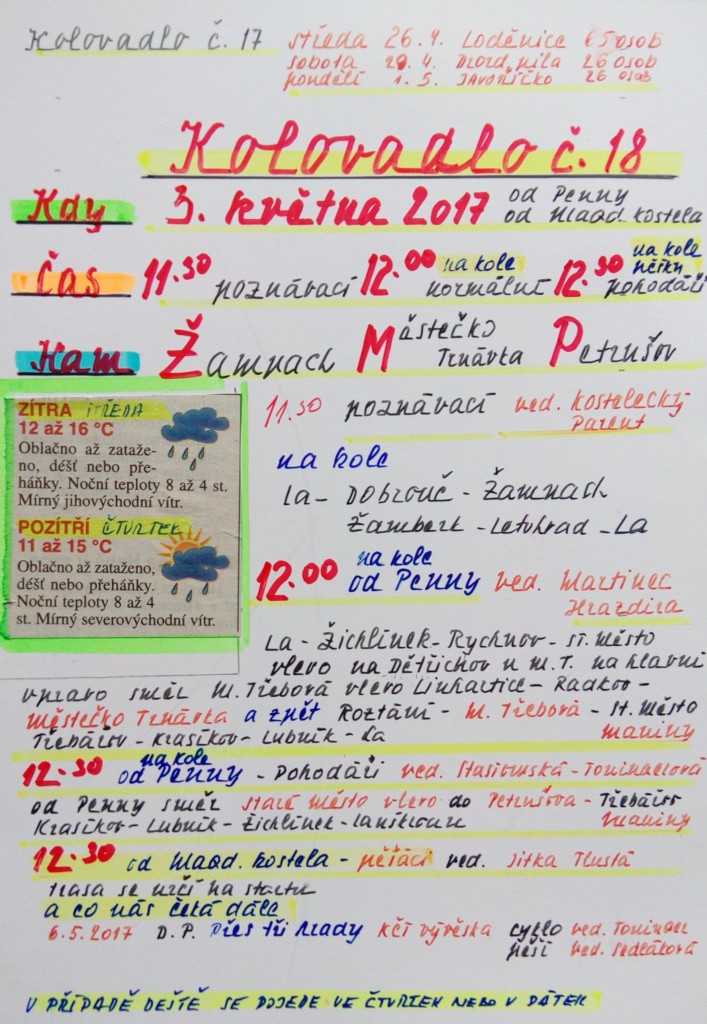 Kolovadlo č. 17
středa 26.4. Loděnice 65 osob
sobota 29.4. Drozd. pila 26 osob
pondělí 1.5. Javoříčko 26 osob
Kolovadlo č. 18
Kdy 3. května 2017 od Penny
od Maod. kostela
Čas 11.30 poznávací 12.00 na kole normální 12.30 na kole pěšky pohodáři
Kam Žampach Městečko Trnávka Petrušov
ZÍTRA STŘEDA
12 až 16 °C
Oblačno až zataže-
no, déšť nebo pře-
háňky. Noční teploty 8 až 4 st.
Mírný jihovýchodní vítr.
POZÍTŘÍ ČTVRTEK
11 až 15 °C
Oblačno až zataženo,
déšť nebo přeháňky.
Noční teploty 8 až 4
st. Mírný severovýchodní vítr.
11.30 poznávací ved. Kostelecký
Parent
na kole
La - Dobrouč - Žampach
Žamberk - Letohrad - La
12.00 na kole
od Penny ved. Martinec
Hrazdira
La - Žichlínek - Rychnov - St. Město
vlevo na Dětřichov u M.T. na hlavní
vpravo směr M. Třebová vlevo Linhartice - Radkov -
Městečko Trnávka a zpět Roztání - M. Třebová - St. Město
Třebařov - Krasíkov - Lubník - La maminy
12.30 na kole
od Penny - Pohodáři ved. - Tonincelová
od Penny směr Staré Město vlevo do Petrušova - Třebařov
Krasíkov - Lubník - Žichlínek - Lanškroun maminy
12.30 od Maod. kostela - pěšáci ved. Jitka Tlustá
trasa se určí na startu
a co nás čeká dále
6.5.2017 D.P. Přes tři hrady KČT vývěska cyklo ved. Tonincel
pěší ved. Sedláková
V PŘÍPADĚ DEŠTĚ SE POJEDE VE ČTVRTEK NEBO V PÁTEK